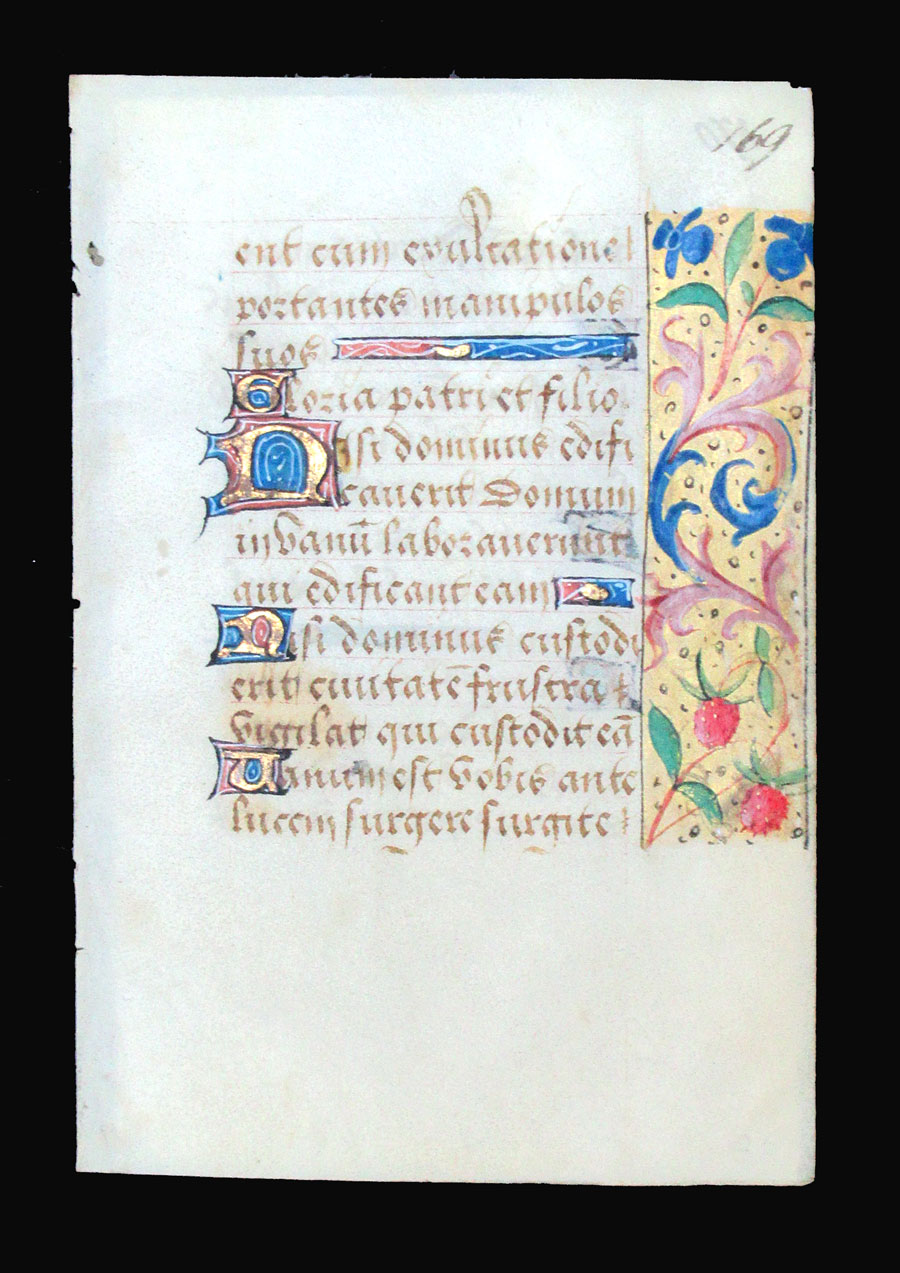 169
ent cum exultatione
portantes manipulos
suos
Gloria patri et filio
Nisi dominus edifi
cauerit Domum
in vanū laborauerunt
qui edificant eam
Nisi dominus custodi
erit ciuitatē frustra
vigilat qui custodit eā
Vanum est vobis ante
lucem surgere surgite